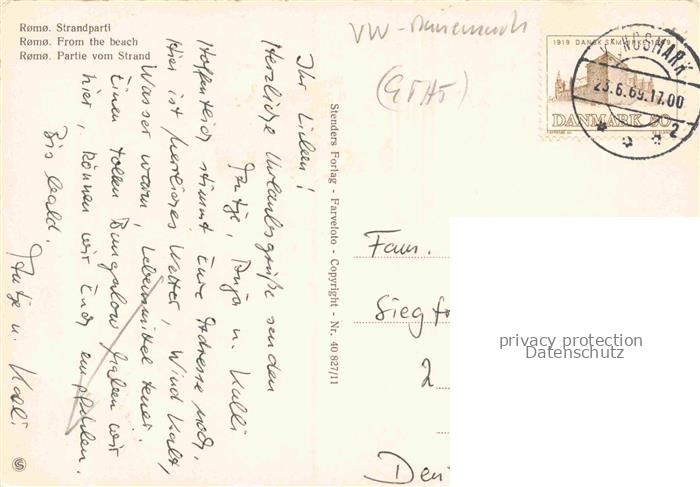 Rømø. Strandparti
Rømø. From the beach
Rømø. Partie vom Strand
Ihr Lieben!
Herzliche Urlaubsgrüße senden
Antje, Anja u. Kalli
Hoffentlich stimmt Eure Adresse noch.
Hier ist herrliches Wetter, Wind kalt,
Wasser warm, Lebensmittel teuer.
Einen tollen Bungalow haben wir
hier, können wir Euch empfehlen.
Bis bald.
Antje u. Kalli
Stenders Forlag - Farvefoto - Copyright - Nr. 40 827/11
VW-Dänemark
1919 DANSK SAMARBEJDE 1969
DANMARK 80
23.6.69.17.00
2
Fam.
Siegf
2
privacy protection
Datenschutz